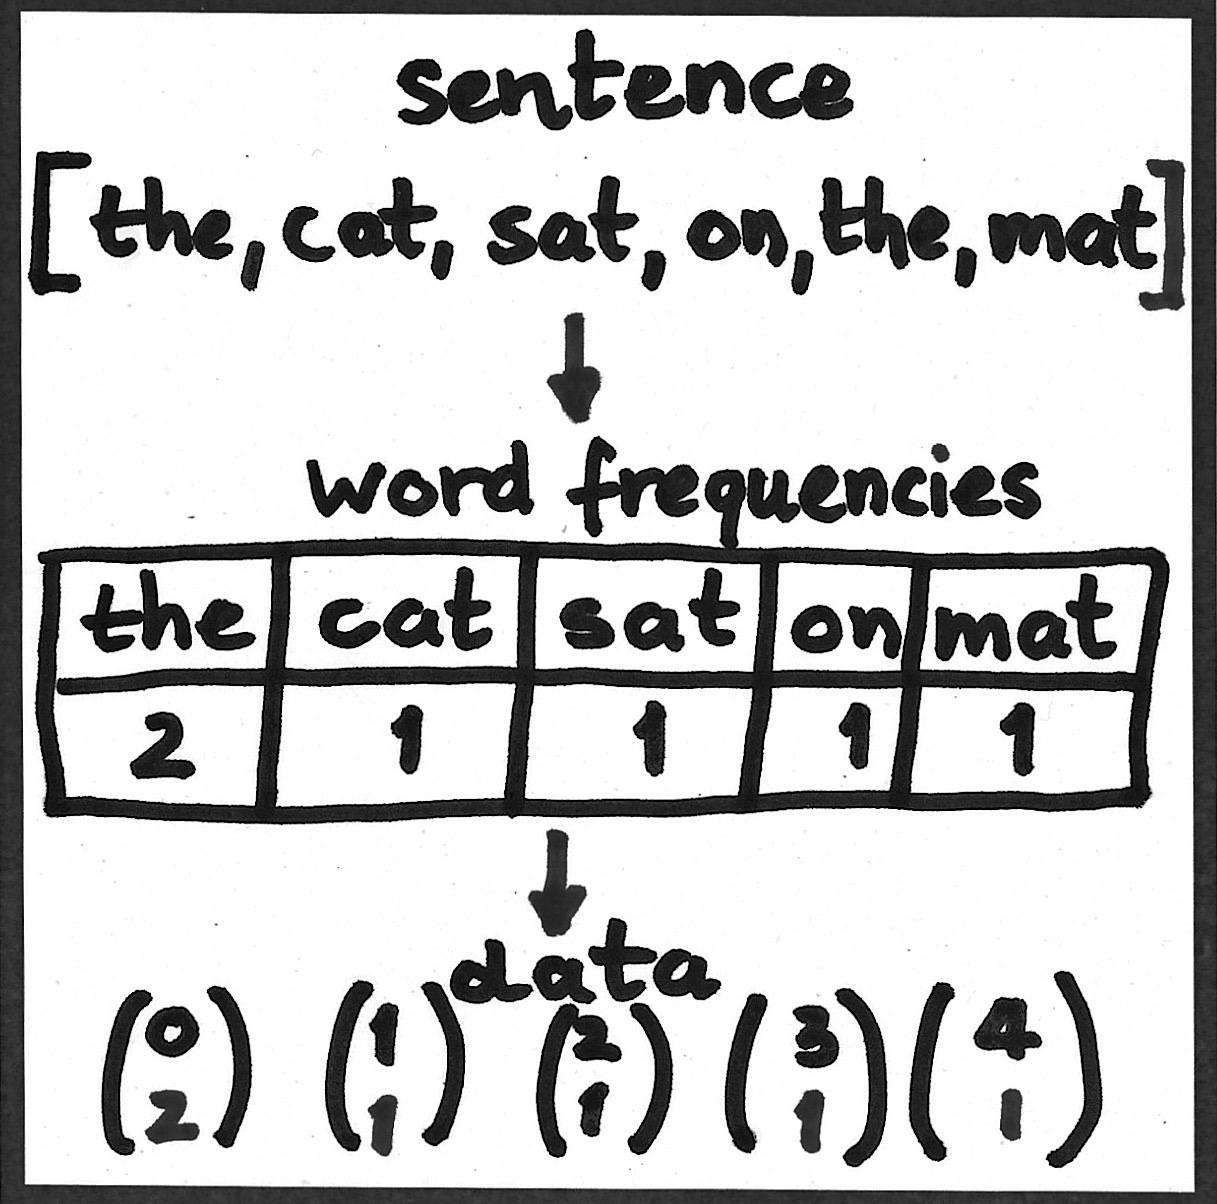 sentence
[the, cat, sat, on, the, mat]
word frequencies
the cat sat on mat
2 1 1 1 1
data
0 1 2 3 4
2 1 1 1 1